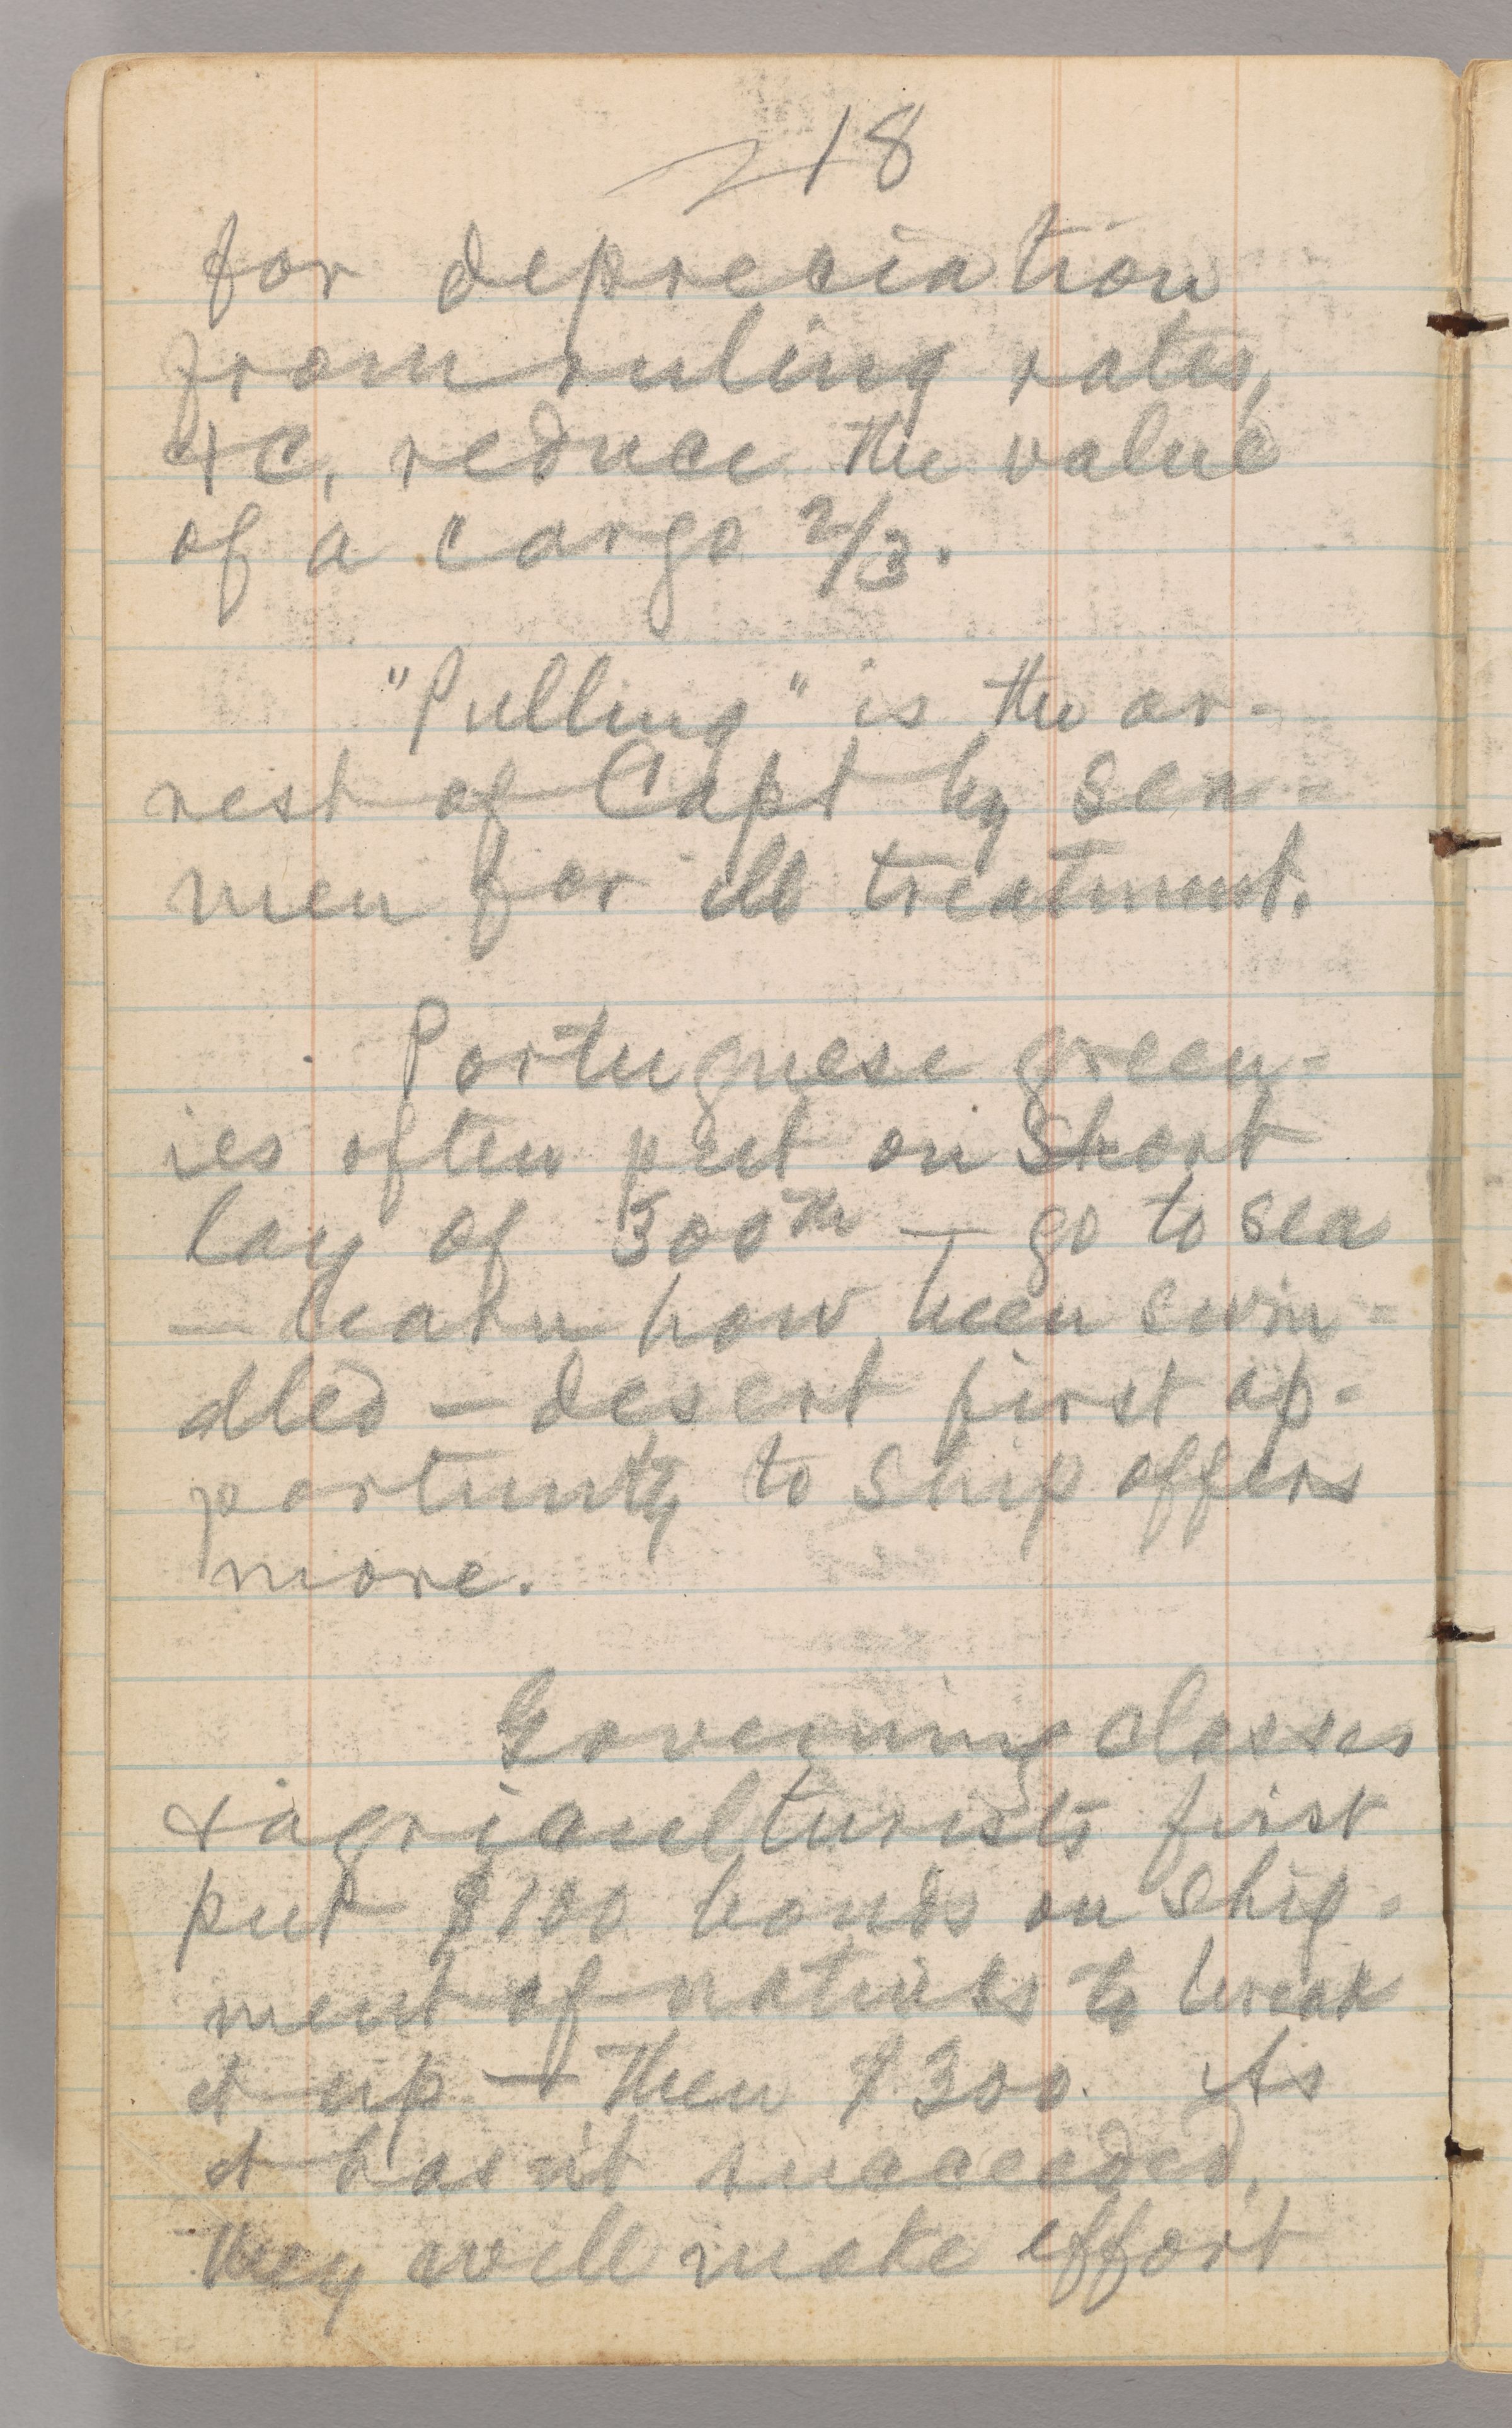 218
for depreciation
from ruling rates,
&c, reduce the value
of a cargo 2/3.
"Pulling" is the ar-
rest of Capt by sea-
men for ill treatment.
Portuguese green-
ies often put on short
lay of 300th — go to sea
— learn how been swin-
dled — desert first op-
portunity to ship offers
more.
Governing classes
& agriculturists first
put $100 bonds on ship-
ment of natives to break
it up — then $300. As
it hasn't succeeded,
they will make effort